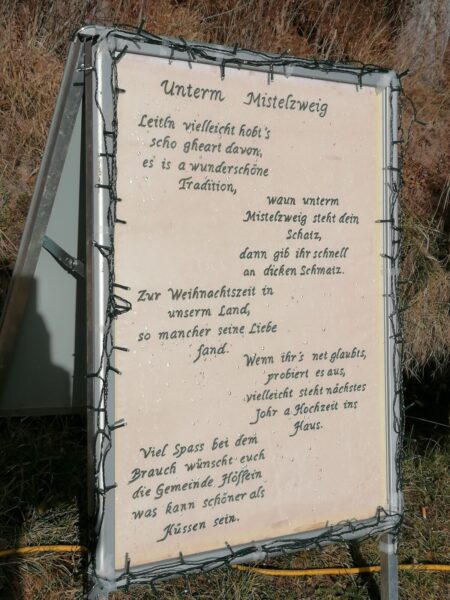 Unterm Mistelzweig
Leitln vielleicht hobt's
scho gheart davon,
es is a wunderschöne
Tradition,
waun unterm
Mistelzweig steht dein
Schatz,
dann gib ihr schnell
an dicken Schmatz.
Zur Weihnachtszeit in
unserm Land,
so mancher seine Liebe
fand.
Wenn ihr's net glaubts,
probiert es aus,
vielleicht steht nächstes
Johr a Hochzeit ins
Haus.
Viel Spass bei dem
Brauch wünscht euch
die Gemeinde Höflein
was kann schöner als
Küssen sein.